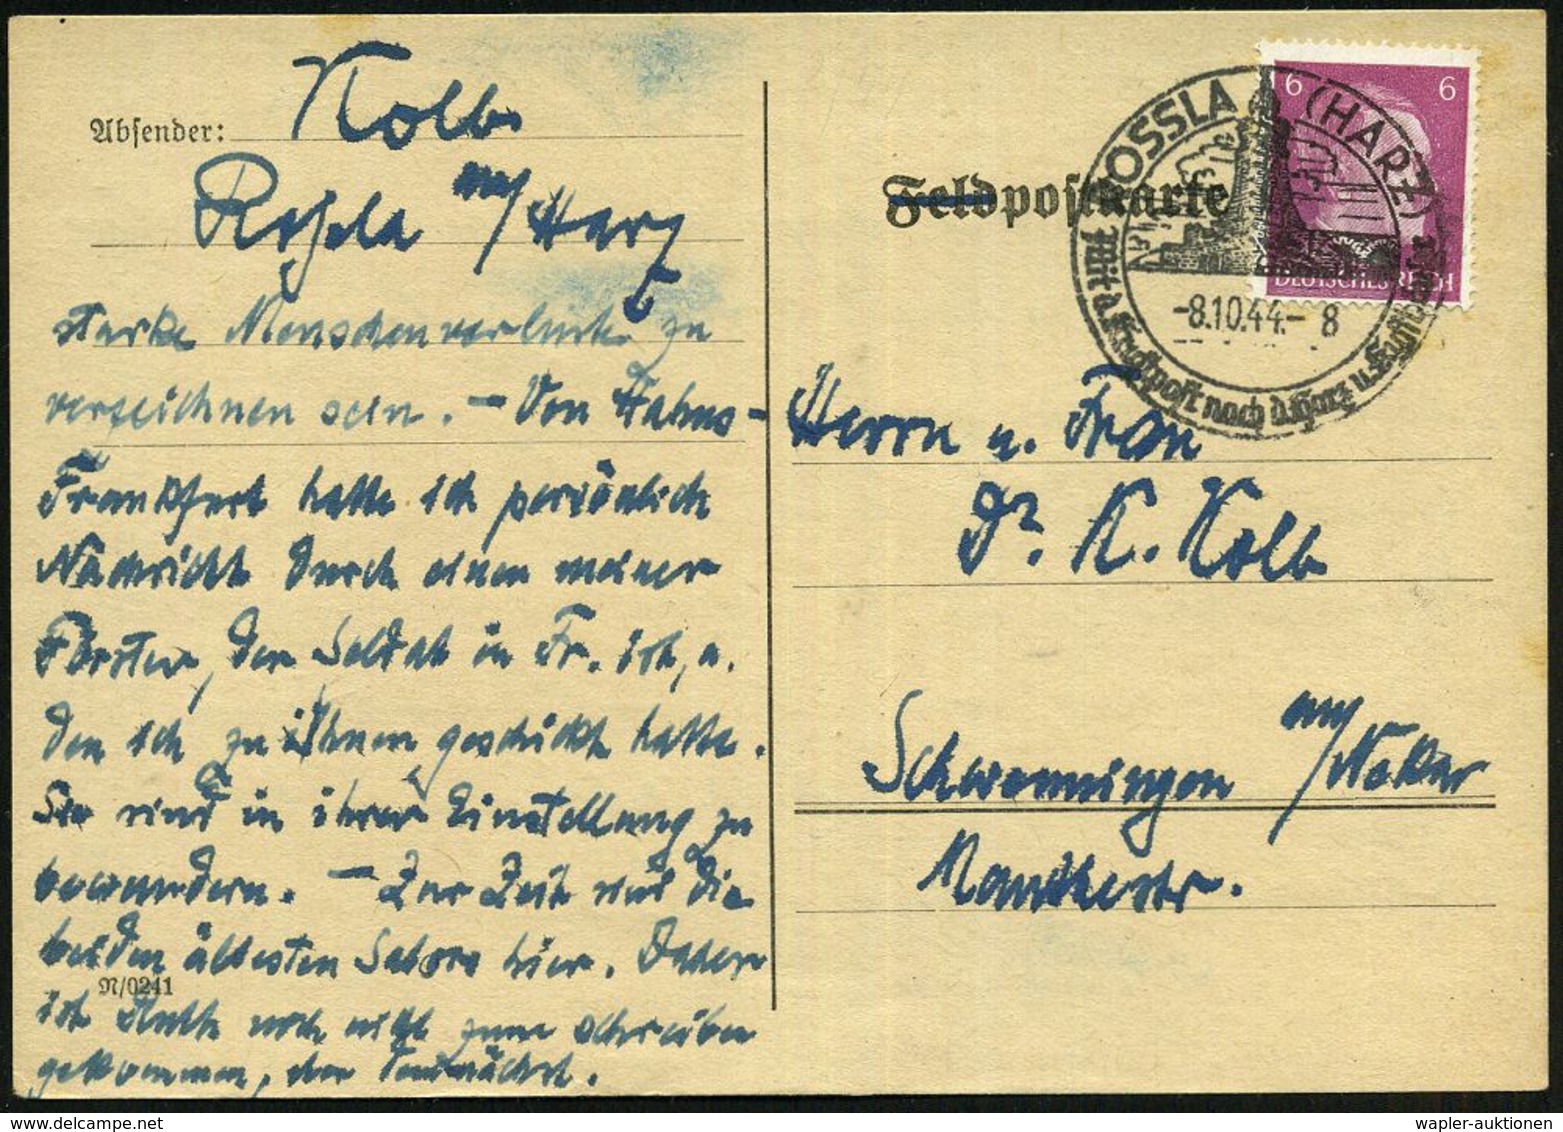 Absender: Kolb
Roßla am/Harz
starke Menschenverluste zu
verzeichnen sein. – Von Hahns-
Frankfurt hatte ich persönlich
Nachricht durch einen meiner
Förster, der Soldat in Fr. ist, u.
den ich zu Ihnen geschickt hatte.
Sie sind in ihrer Einstellung zu
bewundern. – Zur Zeit sind die
beiden ältesten Sebors hier. Daher
ist Ruth noch nicht zum schreiben
gekommen, demnächst.
N/0241
Feldpostkarte
6 6
DEUTSCHES REICH
ROSSLA (HARZ)
-8.10.44.- 8
Mit d. Kraftpost nach d. Harz u. Kyffh.
Herrn u. Frau
Dr. K. Kolb
Schwenningen am/Nekar